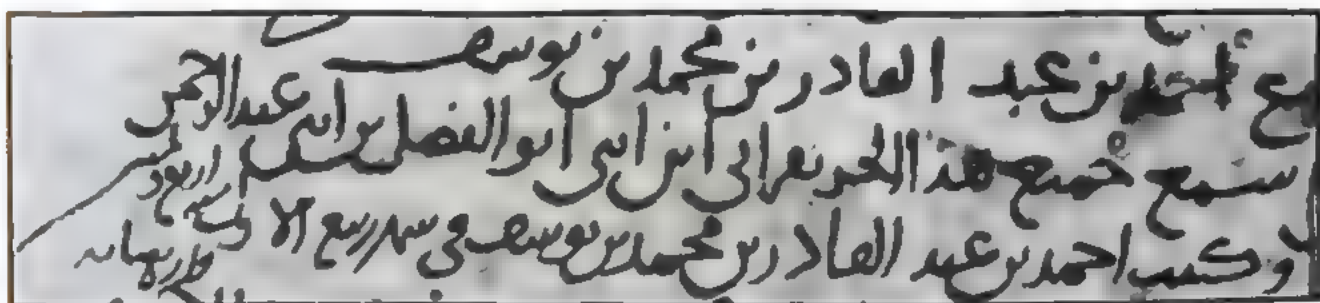 سمع احمد بن عبد القادر بن محمد بن يوسف
سمع جميع هذا الجزء بقراءتي ابن ابني ابو الفضل بن ابني عبد الرحمن
وكتب احمد بن عبد القادر بن محمد بن يوسف في شهر ربيع الاول سنة اربع
واربعمائة